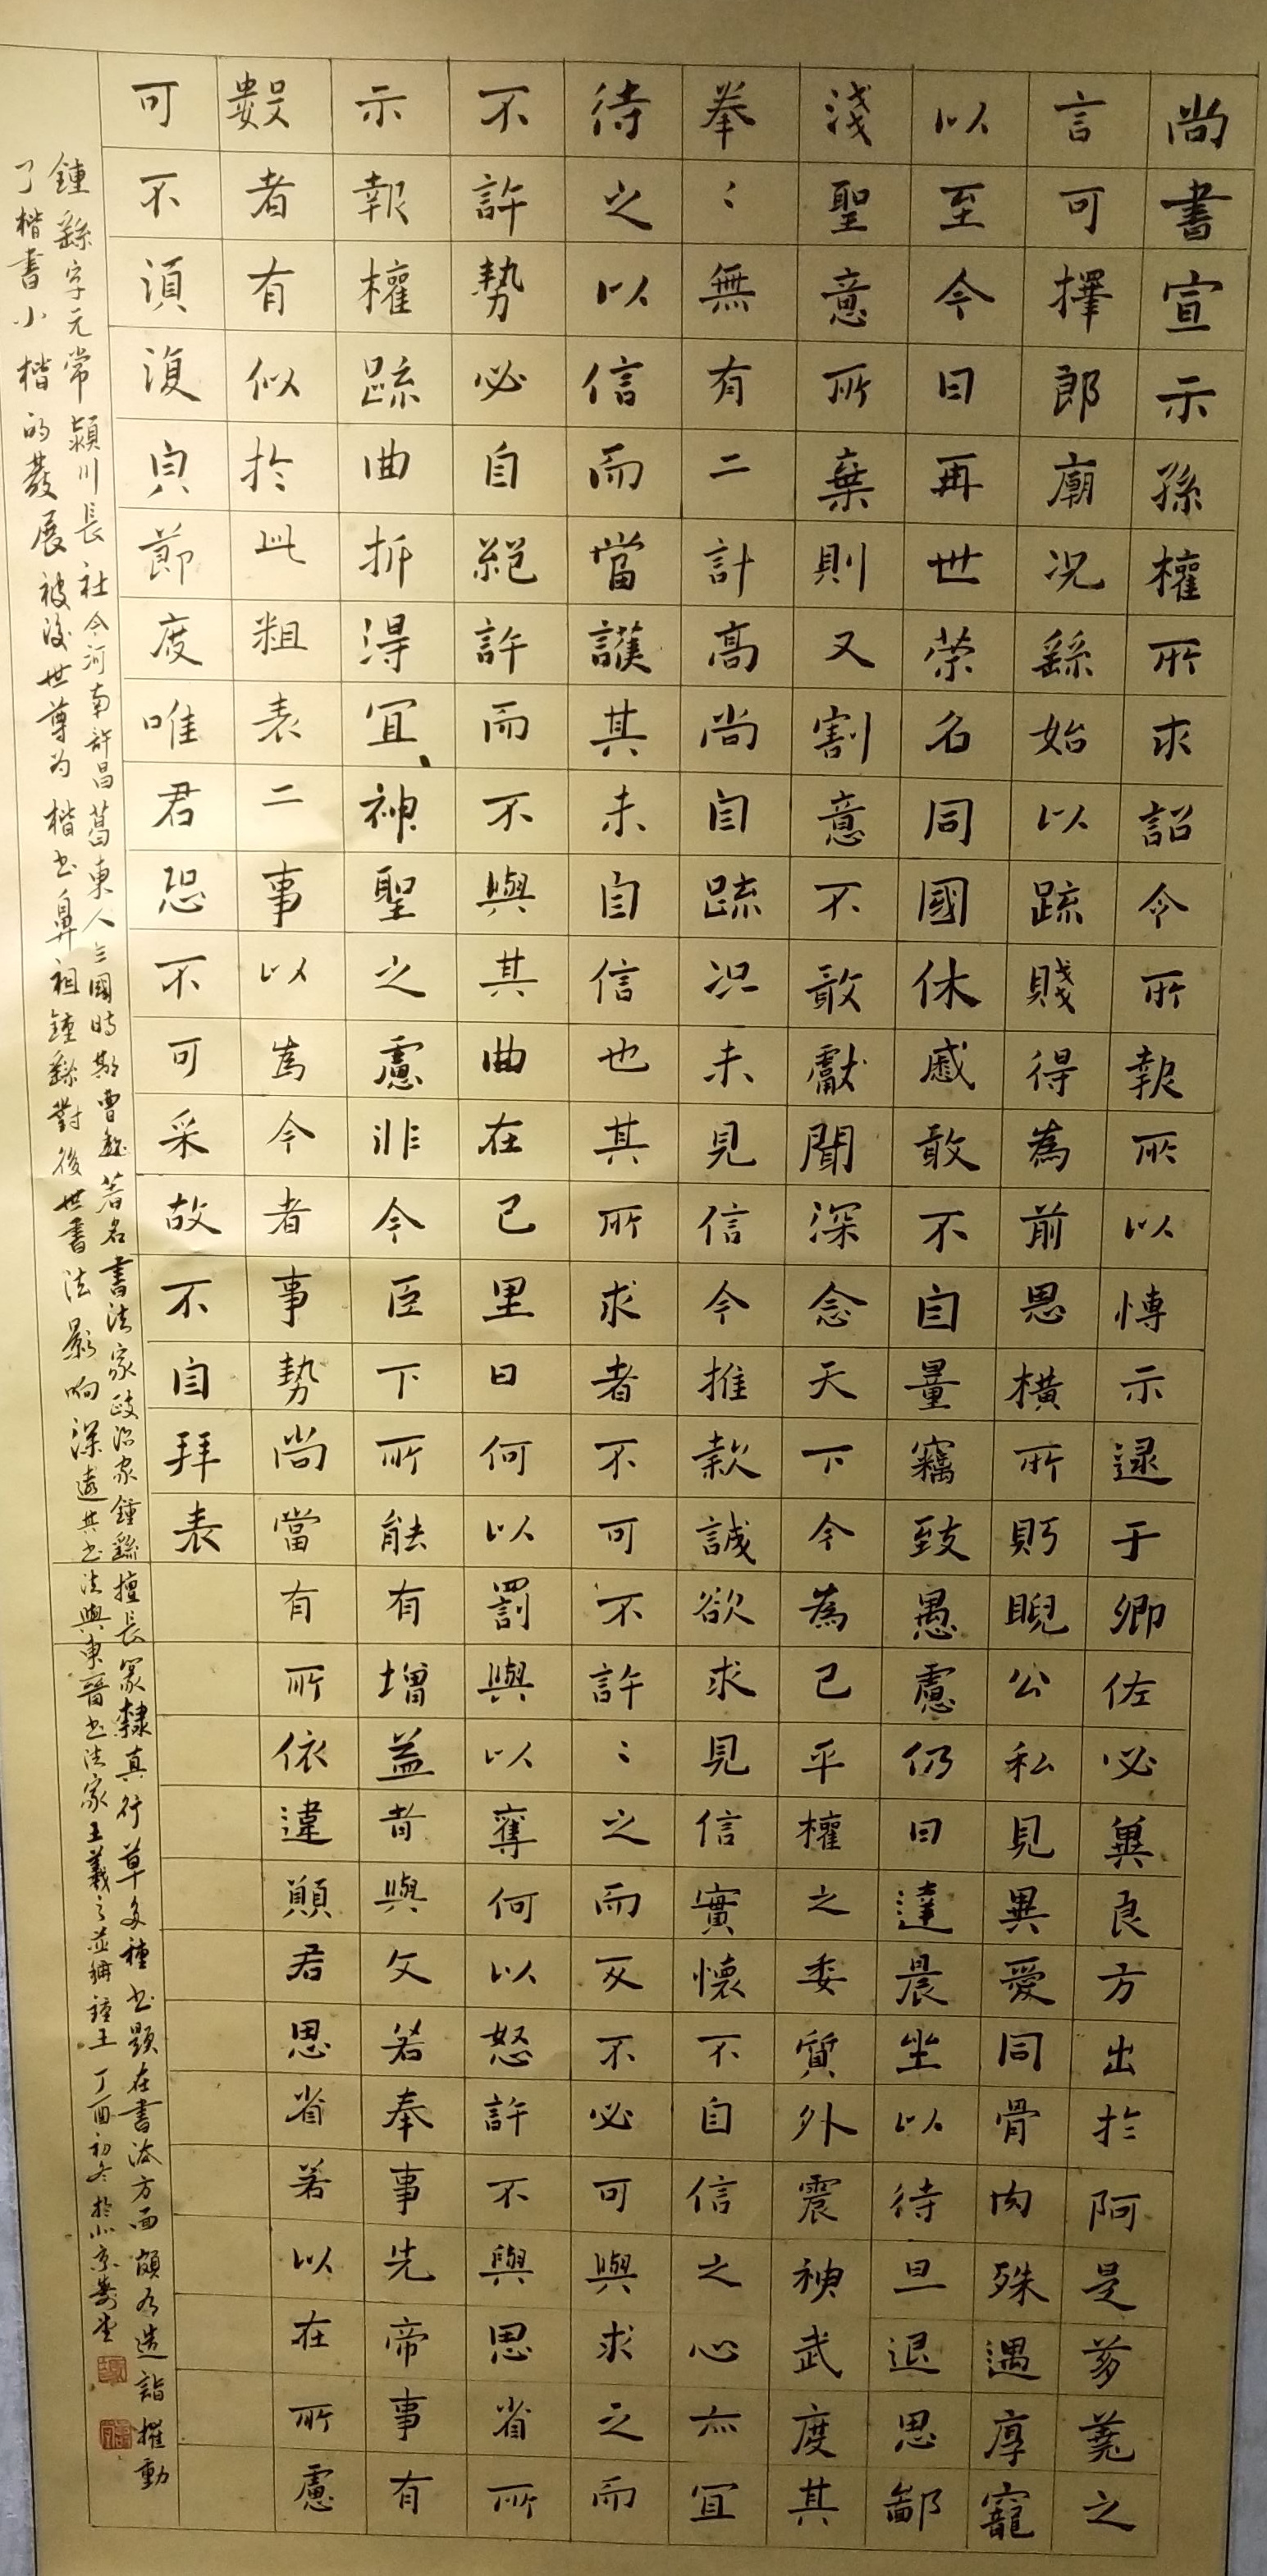 尚書宣示孫權所求詔令所報所以博示逮于卿佐必冀良方出於阿是芻蕘之
言可擇郎廟况繇始以疏賤得為前恩橫所盻睨公私見異愛同骨肉殊遇厚寵
以至今日再世榮名同國休慼敢不自量竊致愚慮仍日達晨坐以待旦退思鄙
淺聖意所棄則又割意不敢獻聞深念天下今為已平權之委質外震神武度其
拳〻無有二計高尚自疏况未見信今推款誠欲求見信實懷不自信之心亦宜
待之以信而當護其未自信也其所求者不可不許〻之而反不必可與求之而
不許勢必自絕許而不與其曲在己里曰何以罰與以奪何以怒許不與思省所
示報權疏曲折得宜神聖之慮非今臣下所能有增益昔與文若奉事先帝事有
數者有似於此粗表二事以為今者事勢尚當有所依違願君思省若以在所慮
可不須復貟節度唯君恐不可采故不自拜表
鍾繇字元常潁川長社今河南許昌葛東人三國時期曹魏著名書法家政治家鍾繇擅長篆隸真行草多種书題在書法方面頗有造詣推動
了楷書小楷的發展被後世尊为楷书鼻祖鍾繇對後世書法影响深遠其书法與東晉书法家王羲之並稱鍾王丁酉初冬於北京